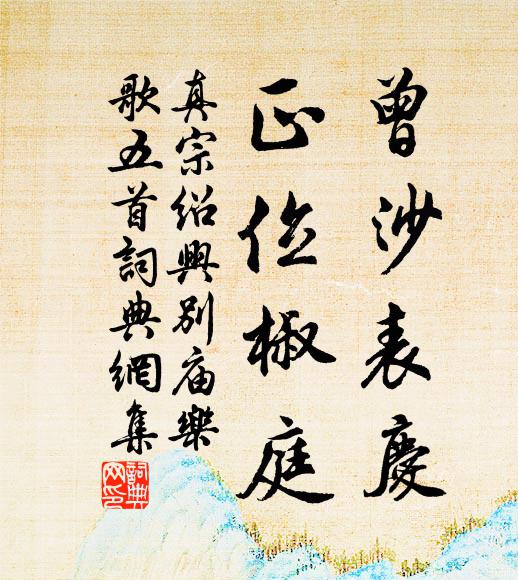 曾沙表慶
正位椒庭
真宗紹興別庙樂
歌五首詞典網集
詞典网印